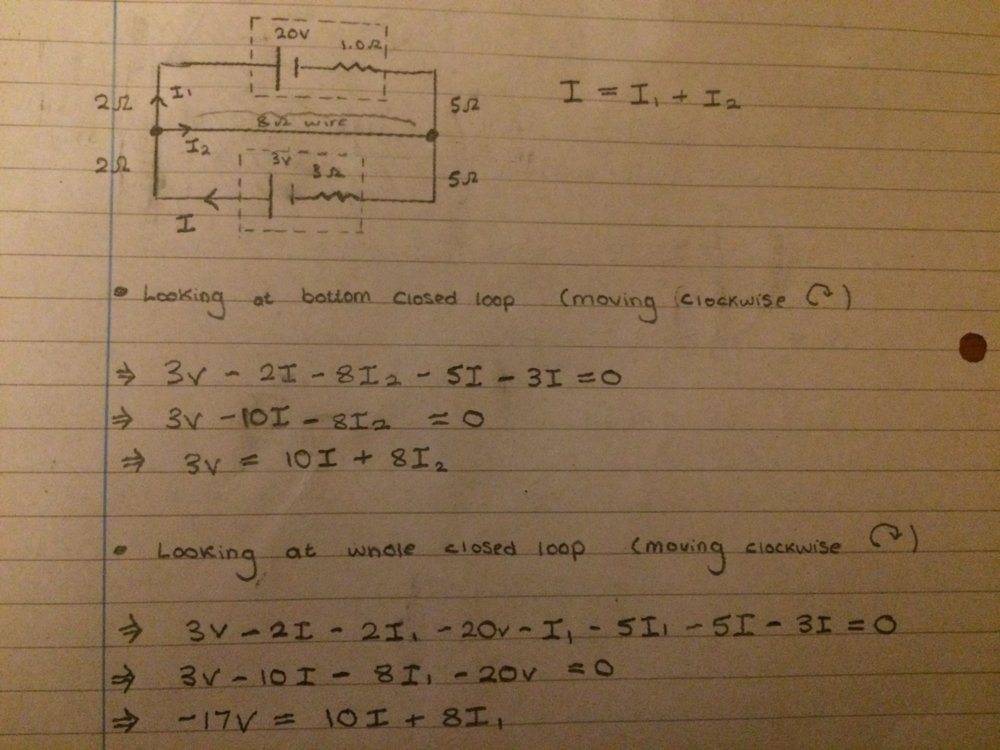 20V
1.0Ω
2Ω
I₁
5Ω
I = I₁ + I₂
8Ω wire
I₂
2Ω
3V
3Ω
5Ω
I
• Looking at bottom closed loop (moving clockwise ↷)
⇒ 3V - 2I - 8I₂ - 5I - 3I = 0
⇒ 3V - 10I - 8I₂ = 0
⇒ 3V = 10I + 8I₂
• Looking at whole closed loop (moving clockwise ↷)
⇒ 3V - 2I - 2I₁ - 20V - I₁ - 5I₁ - 5I - 3I = 0
⇒ 3V - 10I - 8I₁ - 20V = 0
⇒ -17V = 10I + 8I₁